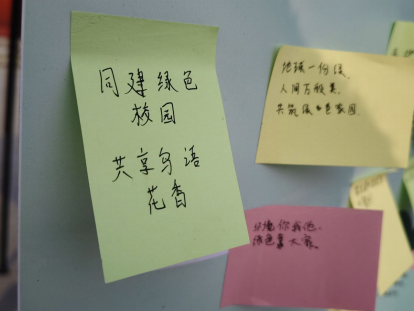 同建绿色
校园
共享鸟语
花香
地球一份绿,
人间万般美.
共筑绿色家园.
环境你我他.
绿色靠大家。